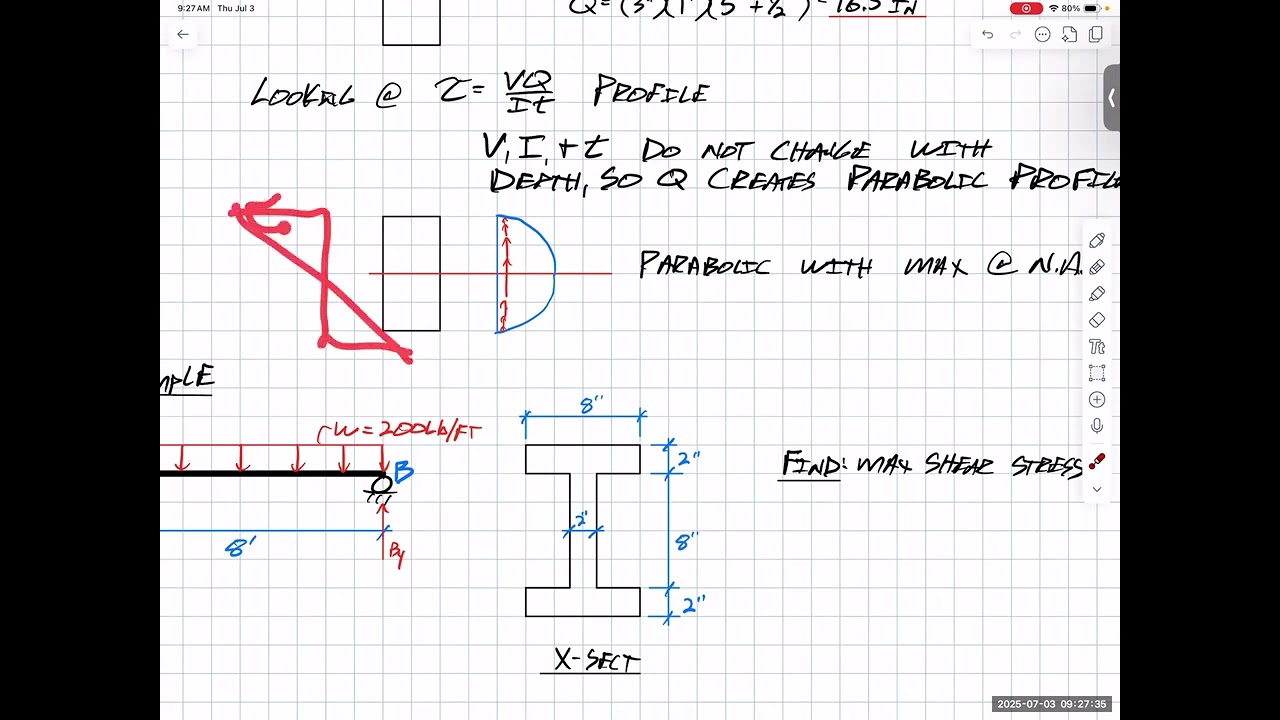 9:27 AM Thu Jul 3
80%
Q = (3")(1")(5 + 1/2) = 16.5 IN
LOOKING @ τ = VQ/It PROFILE
V, I, + t DO NOT CHANGE WITH
DEPTH, SO Q CREATES PARABOLIC PROFILE
PARABOLIC WITH MAX @ N.A.
MPLE
W = 200 LB/FT
B
8'
By
8"
2"
2"
8"
2"
FIND: MAX SHEAR STRESS
X-SECT
Tt
2025-07-03 09:27:35